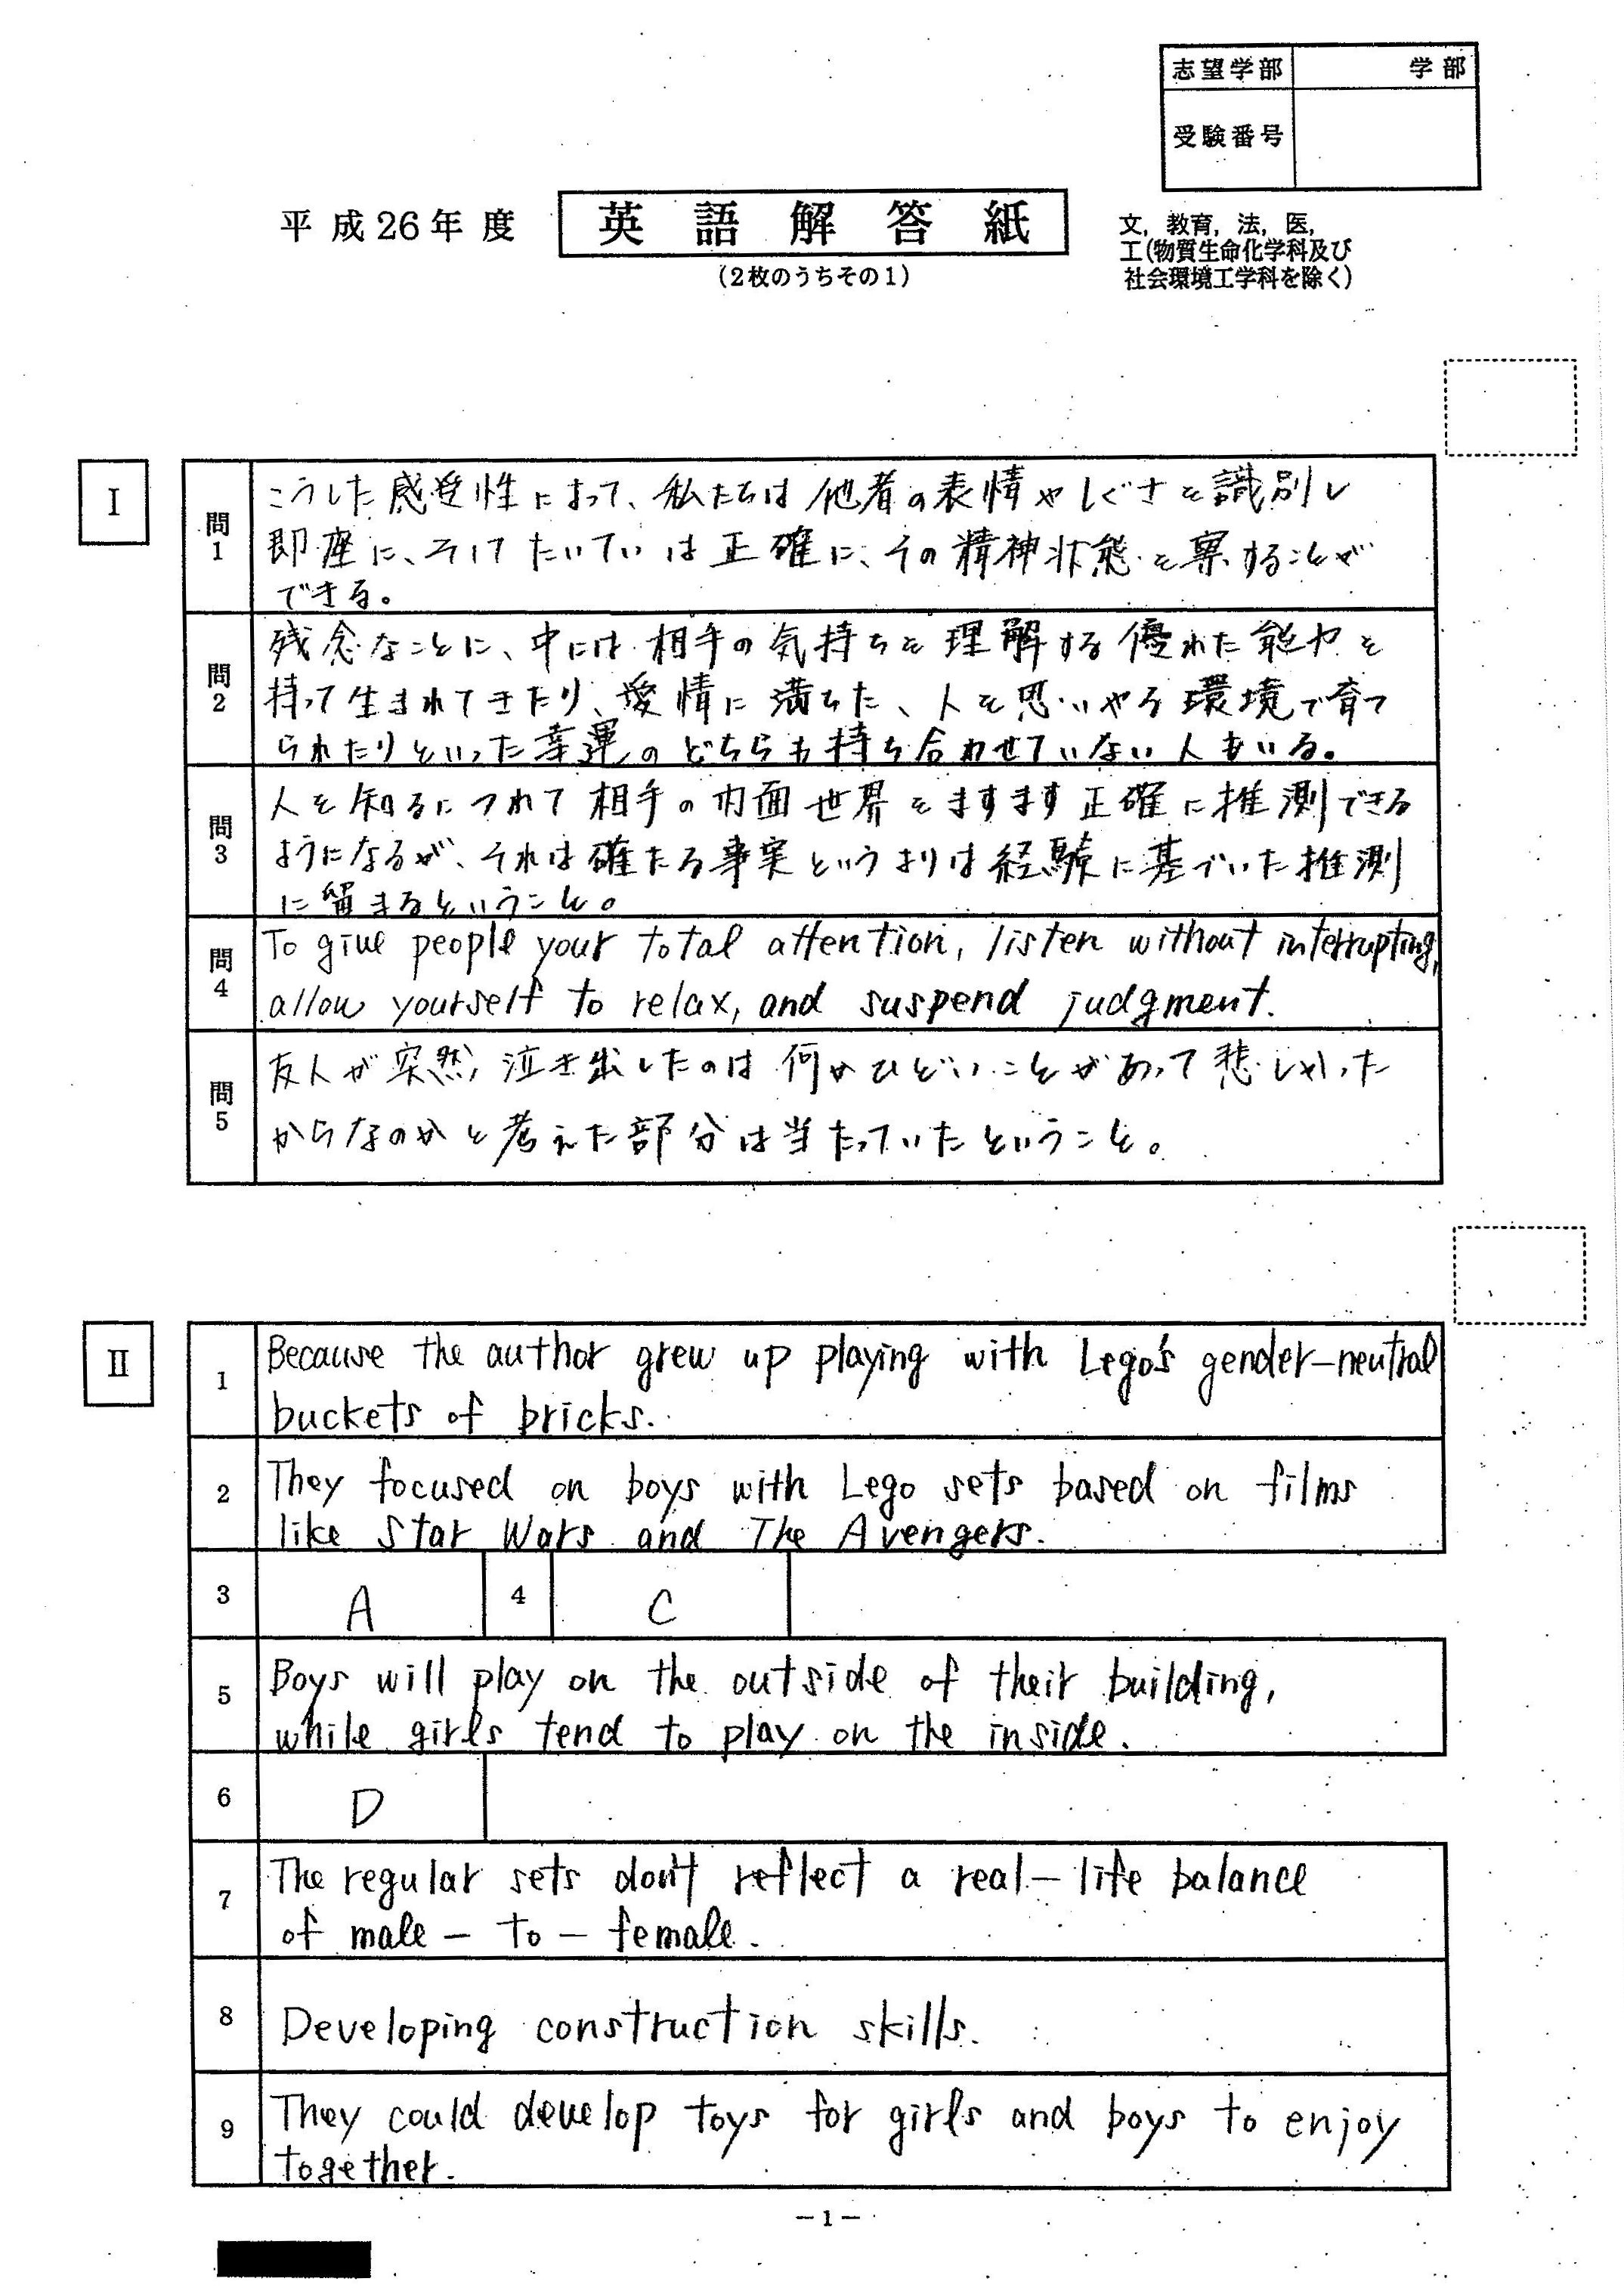 志望学部 学部
受験番号
平成26年度 英語解答紙
(2枚のうちその1)
文, 教育, 法, 医,
工(物質生命化学科及び
社会環境工学科を除く)
I
問1
こうした感受性によって、私たちは他者の表情やしぐさを識別し
即座に、そしてたいていは正確に、その精神状態を察することが
できる。
問2
残念なことに、中には相手の気持ちを理解する優れた能力を
持って生まれてきたり、愛情に満ちた、人を思いやる環境で育て
られたりといった幸運のどちらも持ち合わせていない人もいる。
問3
人を知るにつれて相手の内面世界をますます正確に推測できる
ようになるが、それは確たる事実というよりは経験に基づいた推測
に留まるということ。
問4
To give people your total attention, listen without interrupting,
allow yourself to relax, and suspend judgment.
問5
友人が突然泣き出したのは何かひどいことがあって悲しかった
からなのかと考えた部分は当たっていたということ。
II
1
Because the author grew up playing with Lego's gender-neutral
buckets of bricks.
2
They focused on boys with Lego sets based on films
like Star Wars and The Avengers.
3 A 4 C
5
Boys will play on the outside of their building,
while girls tend to play on the inside.
6 D
7
The regular sets don't reflect a real-life balance
of male-to-female.
8
Developing construction skills.
9
They could develop toys for girls and boys to enjoy
together.
-1-